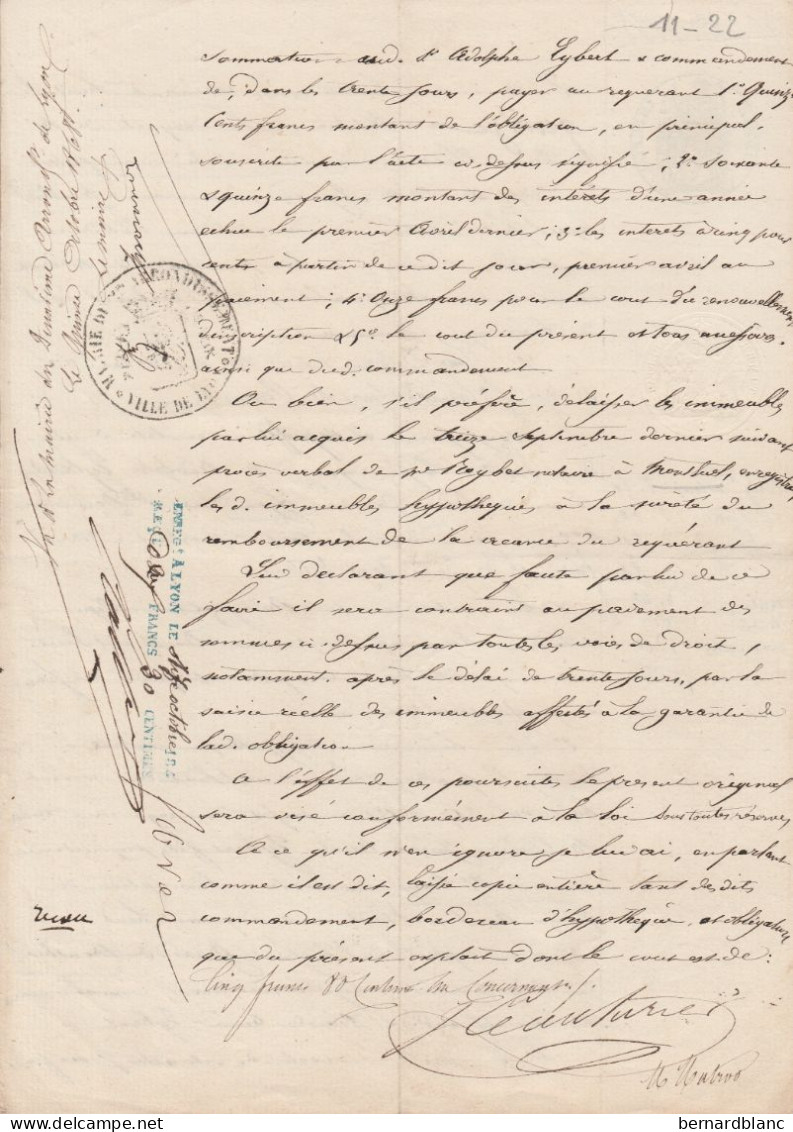 11-22
sommation aud. Sr Adolphe Eybert & commandement
de, dans les trente jours, payer au requerant 1º Quinze
Cents francs montant de l'obligation, en principal,
souscrite par l'acte ci dessus signifié ; 2º soixante
& quinze francs montant des intérêts d'une année
echue le premier Avril dernier ; 3º les interets à cinq pour
cents à partir de cedit jour, premier avril au
paiement ; 4º Onze francs pour le cout du renouvellement
d'inscription & 5º le cout du présent et tous accessoires
ainsi que dud. commandement
Ou bien, s'il préfère, délaisser les immeubles
par lui acquis le treize septembre dernier suivant
procès verbal de me notaire à Montluel, enregistré
lesd. immeubles hypothequés à la sureté du
remboursement de la creance du requérant
Lui declarant que faute par lui de ce
faire il sera contraint au paiement des
sommes ci dessus par toutes les voies de droit,
notamment après le délai de trente jours, par la
saisie réelle des immeubles affectés à la garantie de
lad. obligation
A l'effet de ces poursuites le present original
sera visé conformément à la loi sous toutes réserves
A ce qu'il n'en ignore je lui ai, en parlant
comme il est dit, laissé copie entière tant desdits
commandement, bordereau d'hypothèque, et obligation
que du présent exploit dont le cout est de :
Cinq francs 80 Centimes
Vu à la mairie du deuxième Arrondt. de Lyon
Le quinze Octobre
Le maire
MAIRIE DU ARRONDISSEMENT
VILLE DE LYON
ENREG. A LYON LE seize octobre 185
REÇU deux FRANCS 30 CENTIMES
bernardblanc